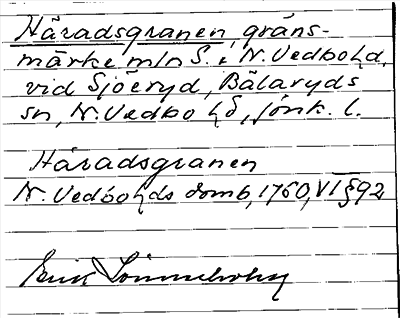 Häradsgranen, gräns-
märke mln S. i N. Vedbo hd,
vid Sjöeryd, Bälaryds
sn, N. Vedbo hd, Jönk. l.
Häradsgranen
N. Vedbo hds domb, 1760, VI § 92
Erik